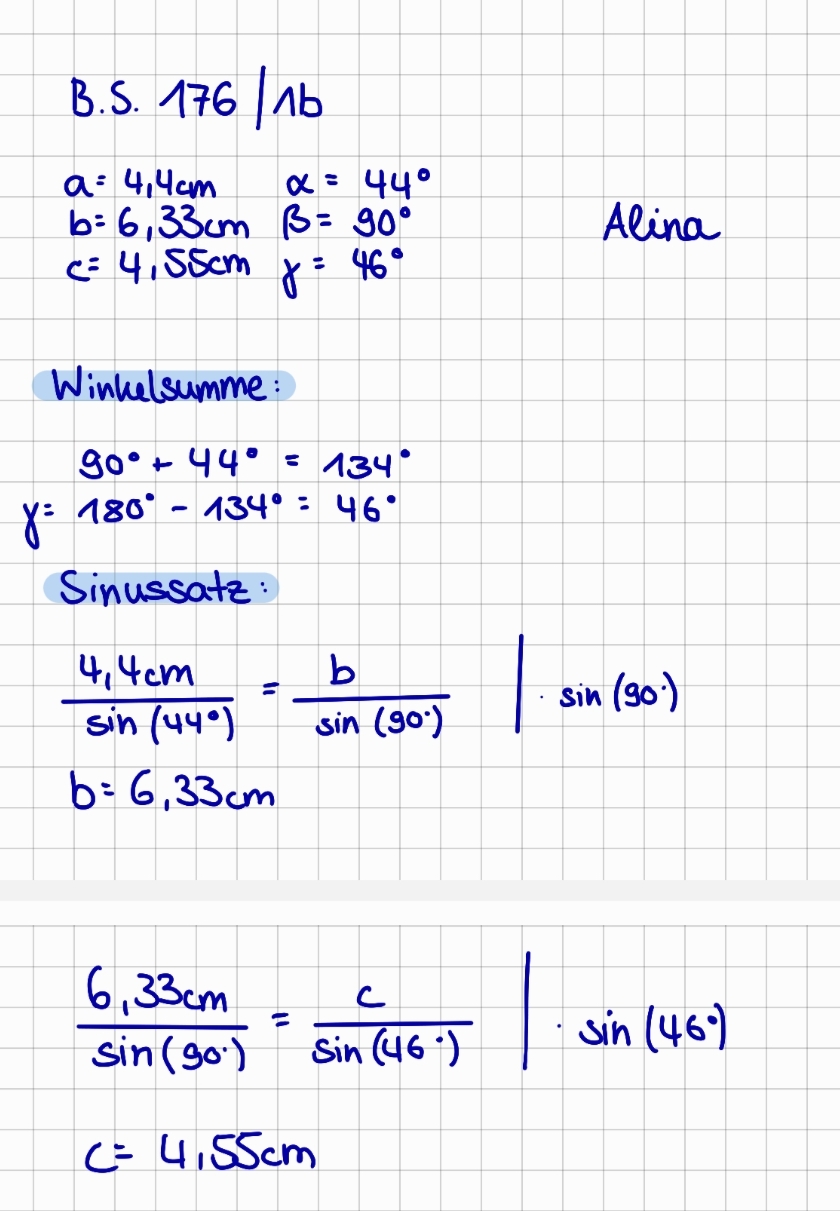 B.S. 176 / 1b
a= 4,4cm α = 44°
b= 6,33cm β = 90°
c= 4,55cm γ = 46°
Alina
Winkelsumme:
90° + 44° = 134°
γ= 180° - 134° = 46°
Sinussatz:
4,4cm / sin (44°) = b / sin (90°) | · sin (90°)
b= 6,33cm
6,33cm / sin (90°) = c / sin (46°) | · sin (46°)
c= 4,55cm